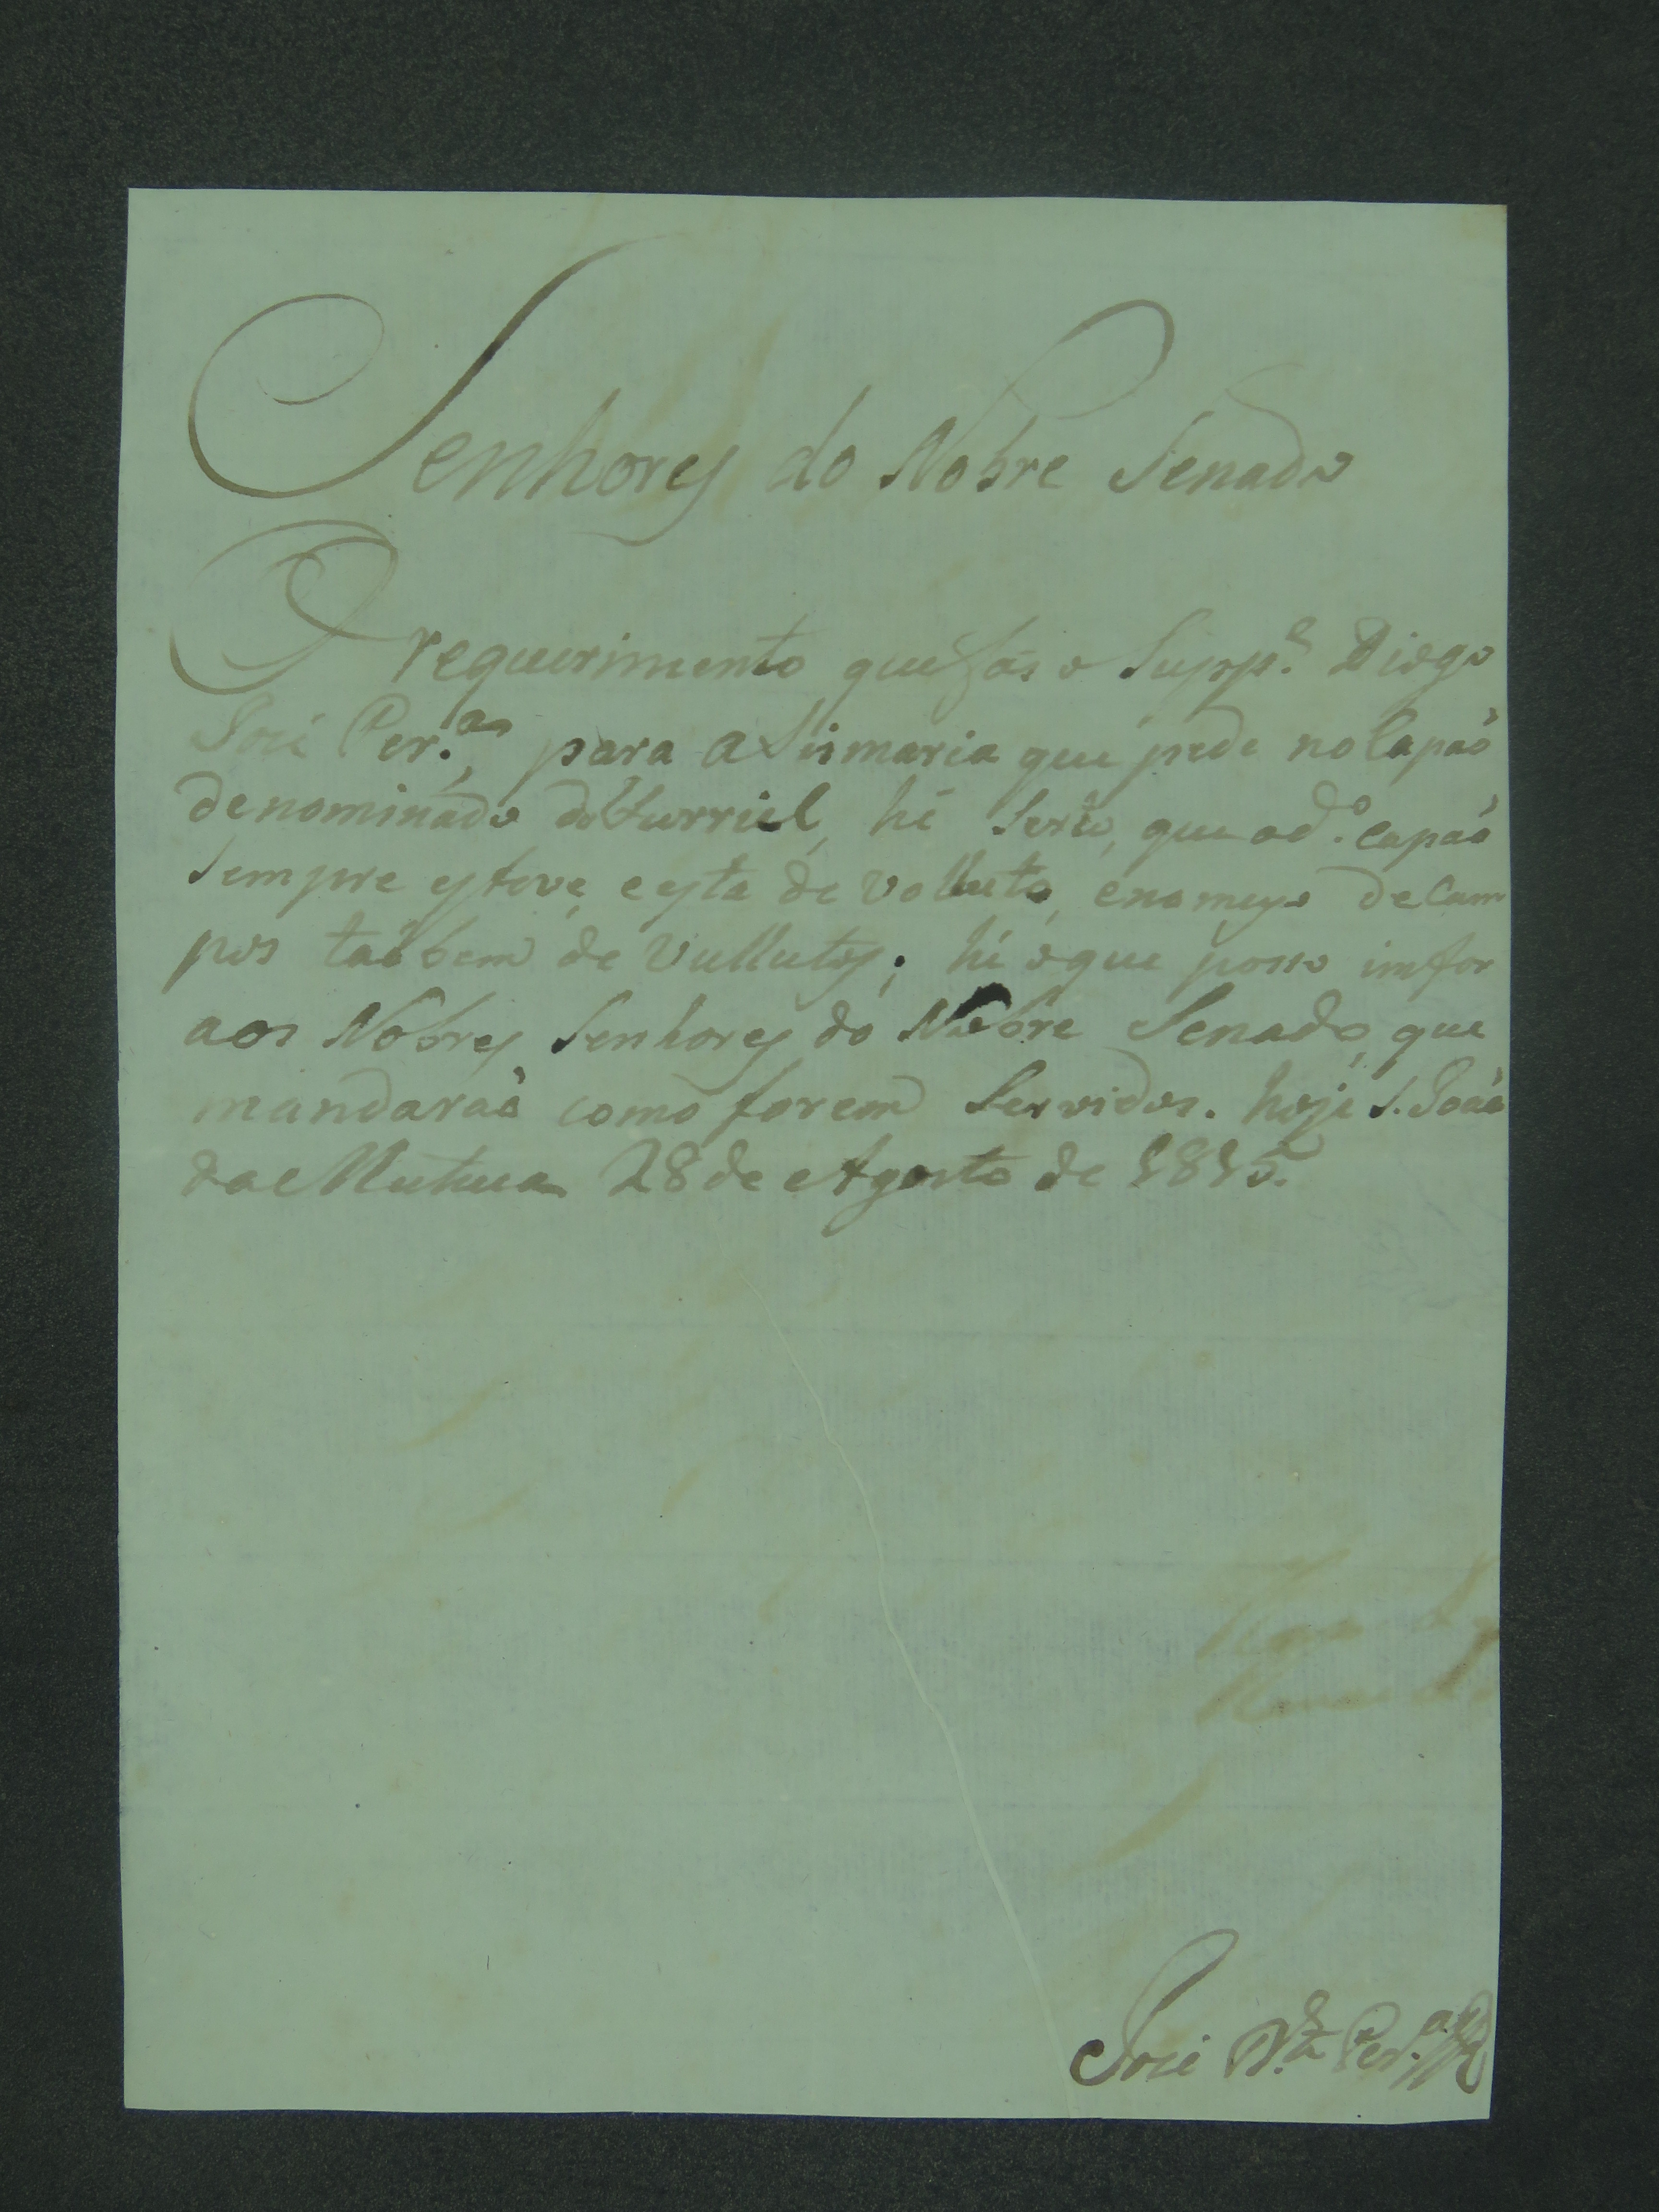 Senhores do Nobre Senado
O requerimento que fás o Supp.e Diogo
José Per.a para a Sismaria que pede no Capaõ
denominado do Furriel, hé serto, que o d.o Capaõ
sempre esteve, e esta de volluto, e no meyo de Cam
pos taõbem de vullutos; hé o que posso imfor
aos Nobres Senhores do Nobre Senado, que
mandaraõ como forem Servidos. hoje S. Joaõ
da Mutuca 28 de Agosto de 1815.
José Per.a